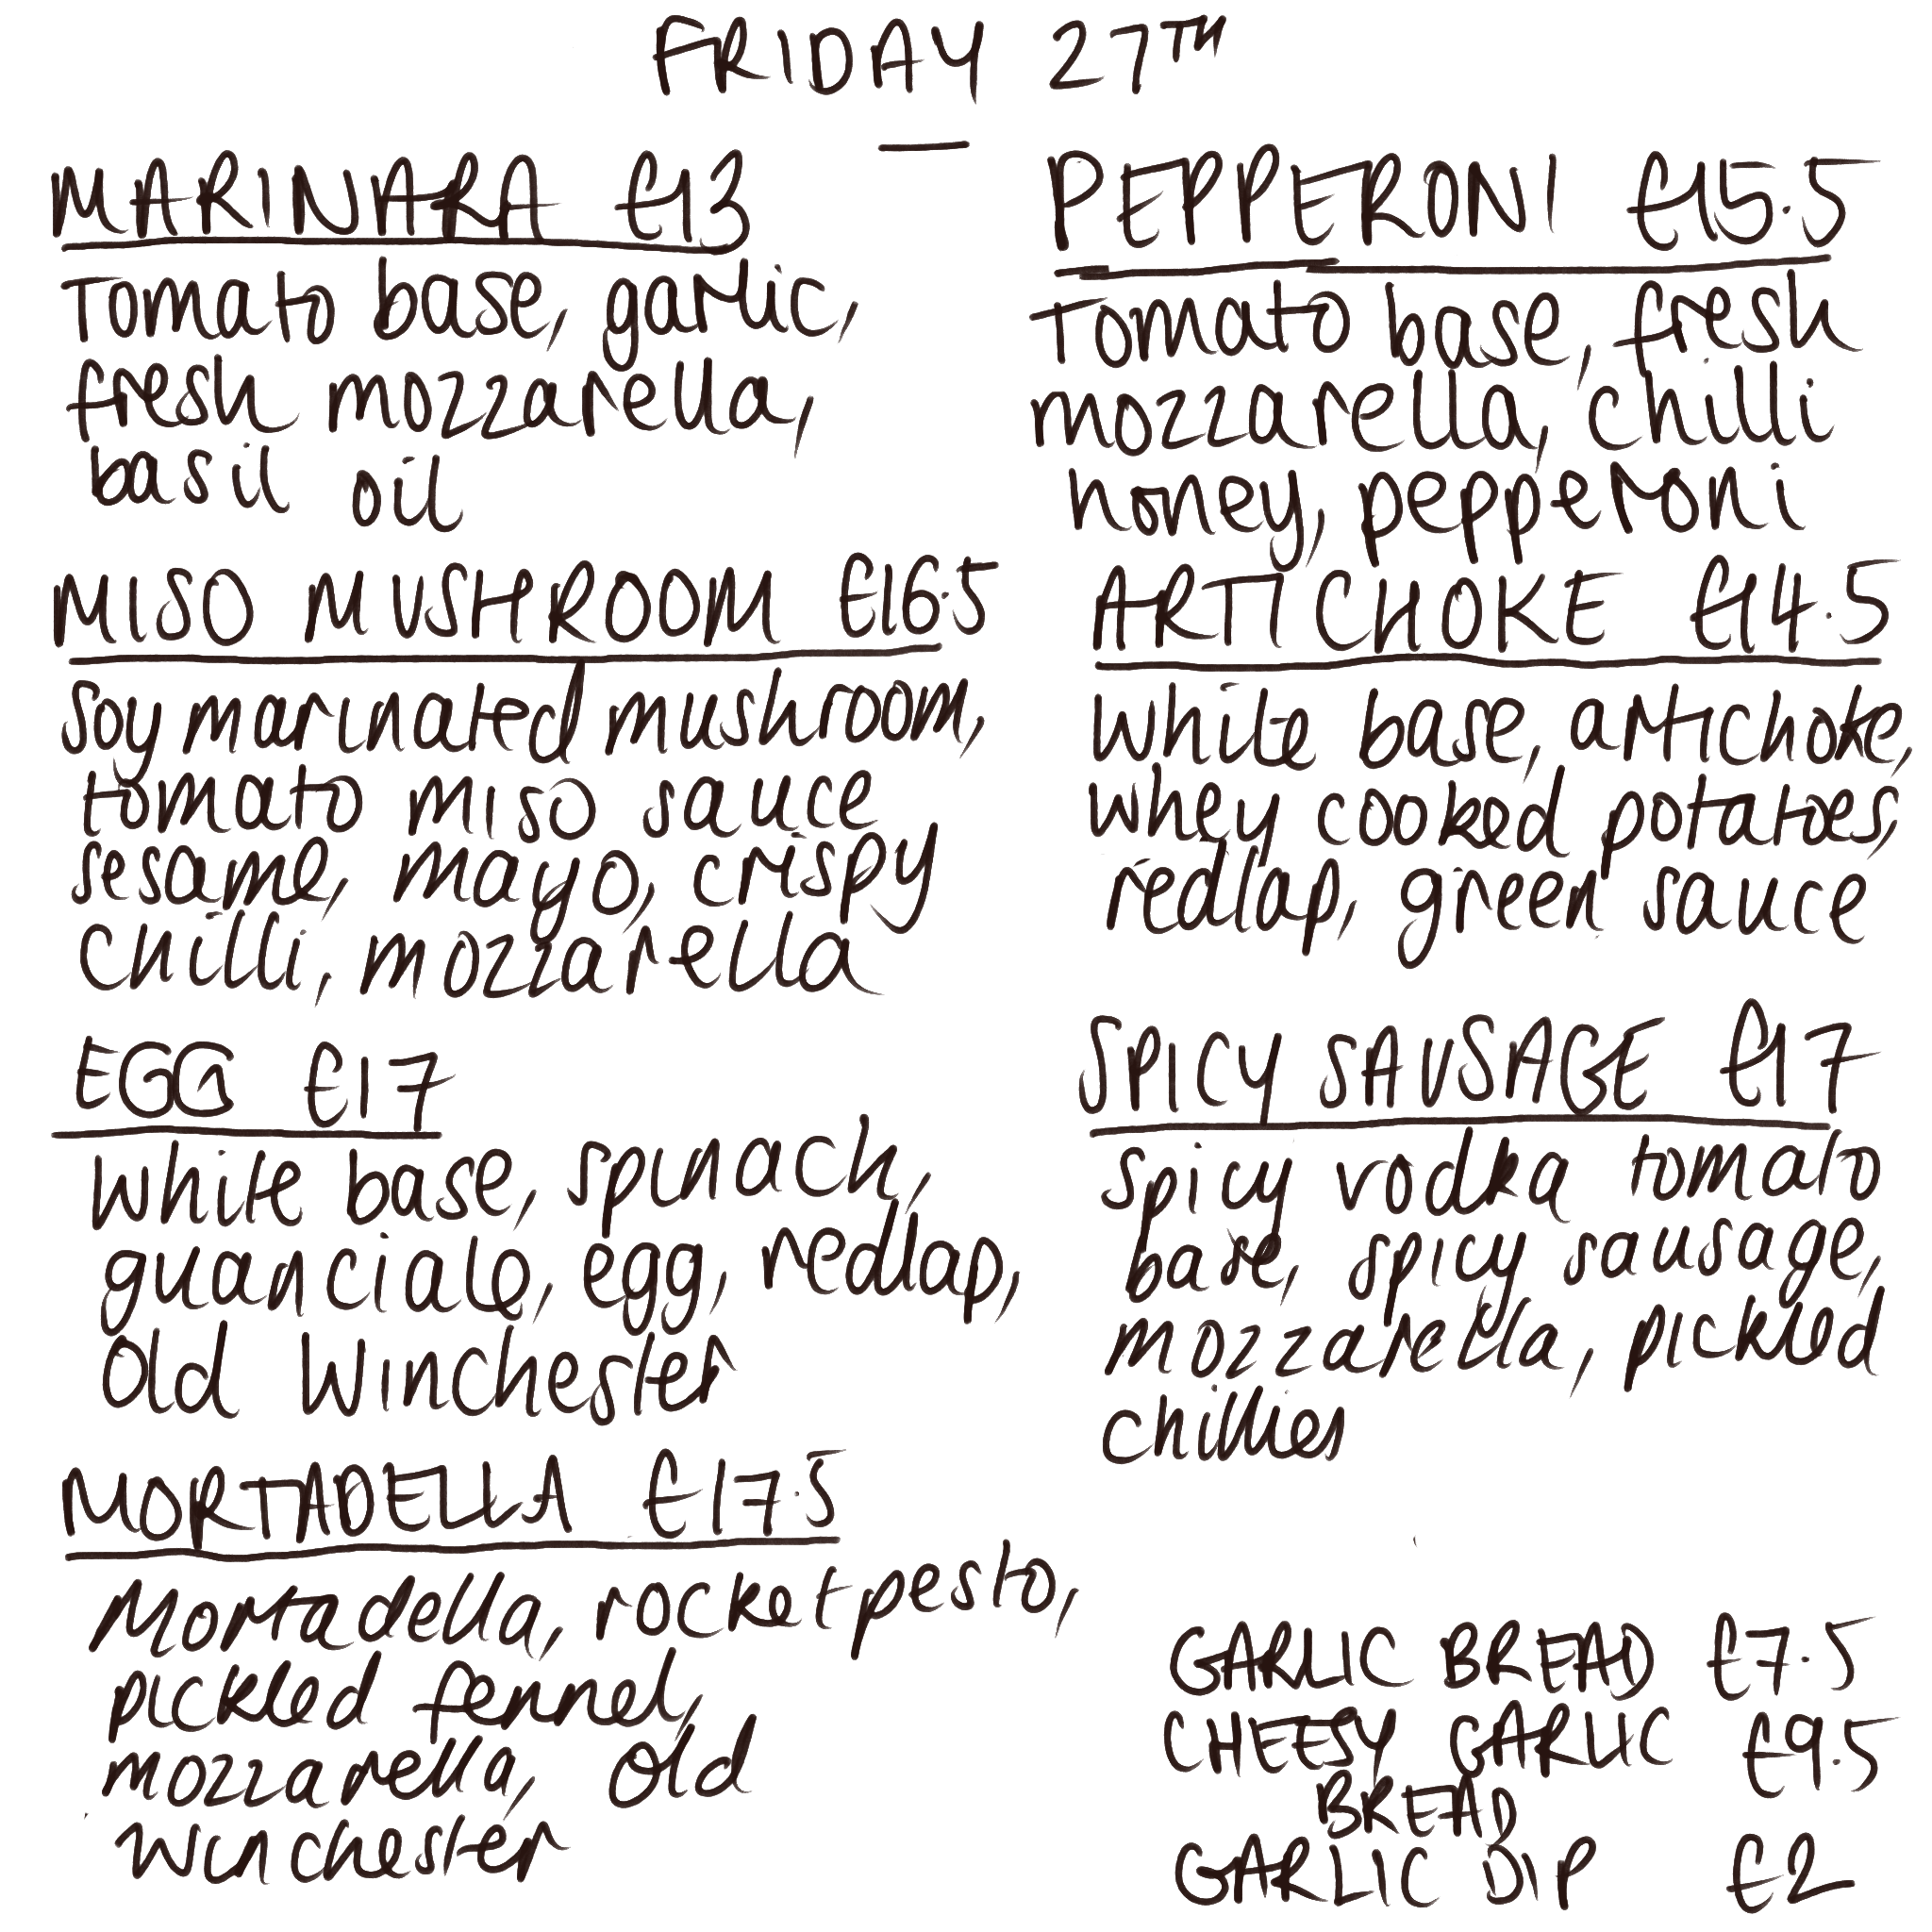 FRIDAY 27TH
MARINARA £13
Tomato base, garlic,
fresh mozzarella,
basil oil
MISO MUSHROOM £16.5
soy marinated mushroom,
tomato miso sauce
sesame, mayo, crispy
chilli, mozzarella
EGG £17
White base, spinach,
guanciale, egg, redlap,
Old Winchester
MORTADELLA £17.5
Mortadella, rocket pesto,
pickled fennel,
mozzarella, Old
Winchester
PEPPERONI £15.5
Tomato base, fresh
mozzarella, chilli
honey, pepperoni
ARTICHOKE £14.5
White base, artichoke,
whey cooked potatoes,
redlap, green sauce
SPICY SAUSAGE £17
Spicy vodka tomato
base, spicy sausage,
mozzarella, pickled
chillies
GARLIC BREAD £7.5
CHEESY GARLIC £9.5
BREAD
GARLIC DIP £2